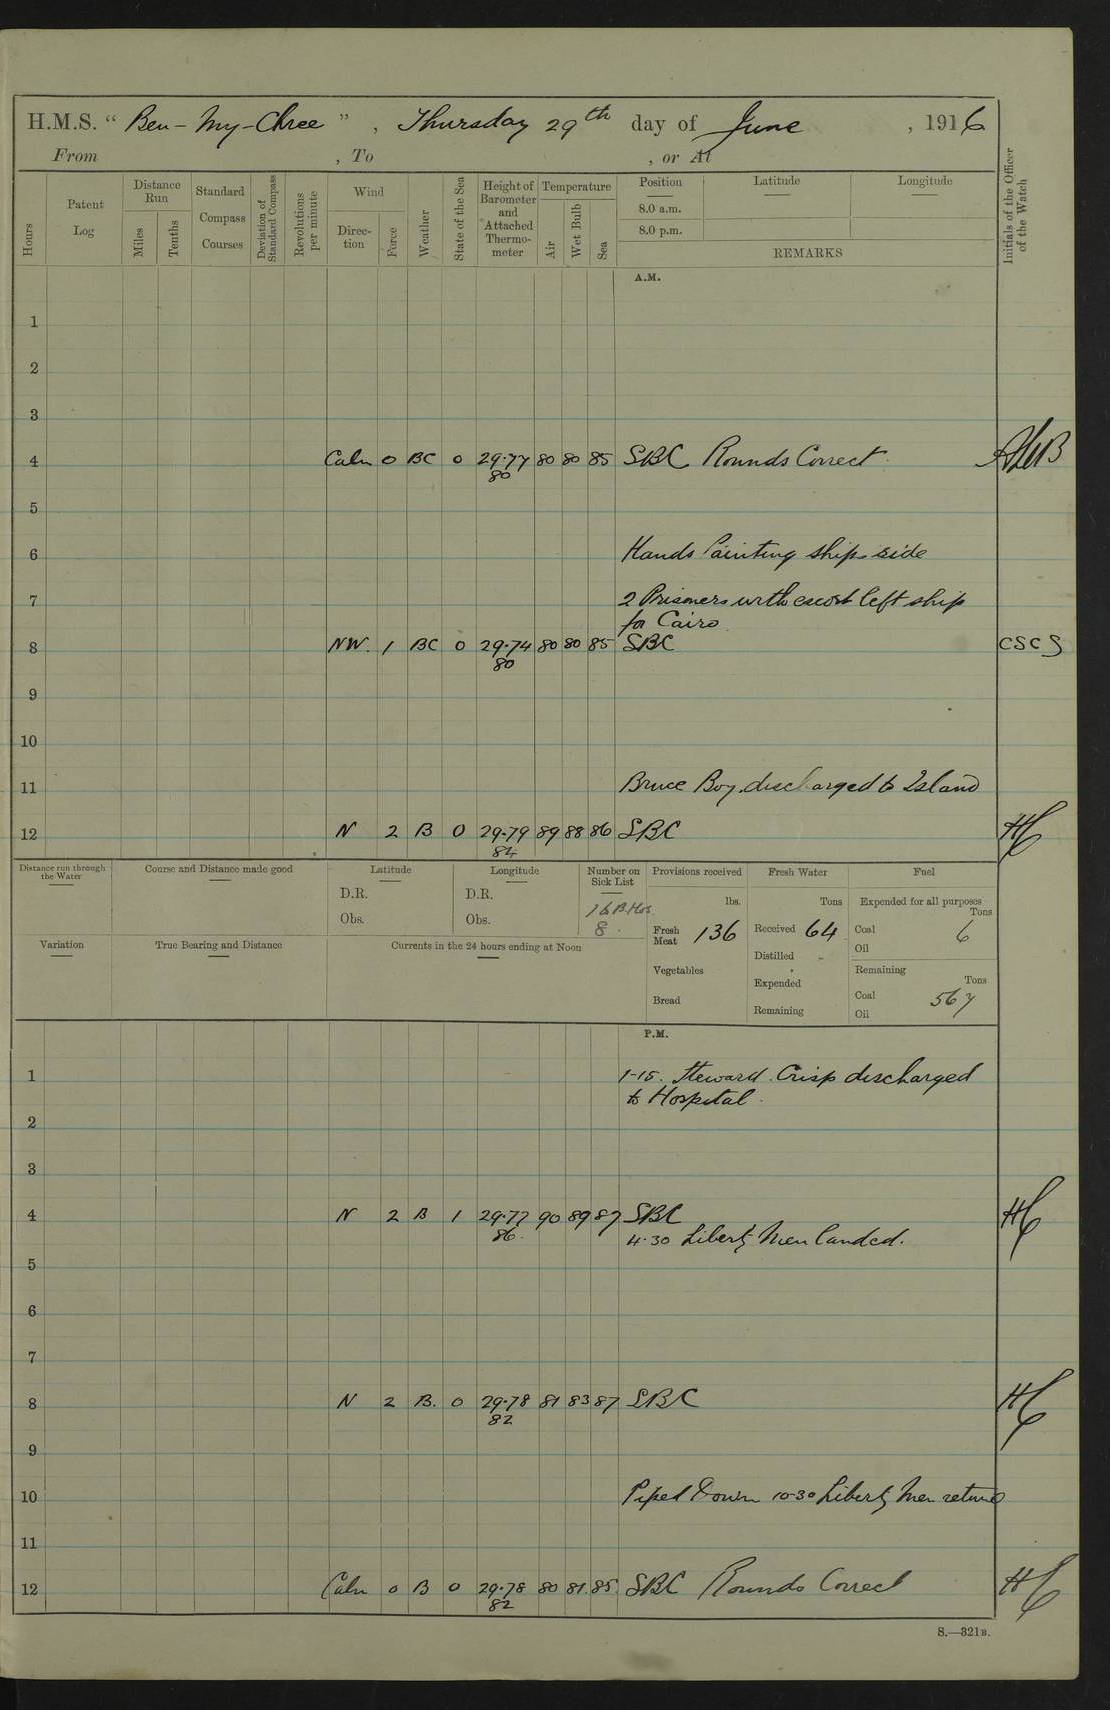 H.M.S. “ Ben-My-Chree ” , Thursday 29th day of June , 1916
From , To , or At
Hours
Patent Log
Distance Run
Miles
Tenths
Standard Compass Courses
Deviation of Standard Compass
Revolutions per minute
Wind
Direc-tion
Force
Weather
State of the Sea
Height of Barometer and Attached Thermo-meter
Temperature
Air
Wet Bulb
Sea
Position
8.0 a.m.
8.0 p.m.
Latitude
Longitude
REMARKS
Initials of the Officer of the Watch
A.M.
1
2
3
4 Calm 0 BC 0 29.77 80 80 85 SBC Rounds Correct
80
5
6 Hands Painting ships side
7 2 Prisoners with escort left ship
for Cairo
8 NW. 1 BC 0 29.74 80 80 85 SBC CSCS
80
9
10
11 Bruce Boy discharged to Island
12 N 2 B 0 29.79 89 88 86 SBC HC
84
Distance run through the Water
Course and Distance made good
Latitude
D.R.
Obs.
Longitude
D.R.
Obs.
Number on Sick List
8.
Provisions received
lbs.
Fresh Meat 136
Vegetables
Bread
Fresh Water
Tons
Received 64
Distilled -
Expended
Remaining
Fuel
Expended for all purposes
Tons
Coal 6
Oil
Remaining
Tons
Coal 567
Oil
Variation
True Bearing and Distance
Currents in the 24 hours ending at Noon
P.M.
1 1-15. Steward Crisp discharged
to Hospital.
2
3
4 N 2 B 1 29.77 90 89 87 SBC HC
86. 4.30 Liberty Men landed.
5
6
7
8 N 2 B. 0 29.78 81 83 87 SBC HC
82
9
10 Piped Down 10-30 Liberty Men returned
11
12 Calm 0 B 0 29.78 80 81 85 SBC Rounds Correct HC
82
S.—321B.